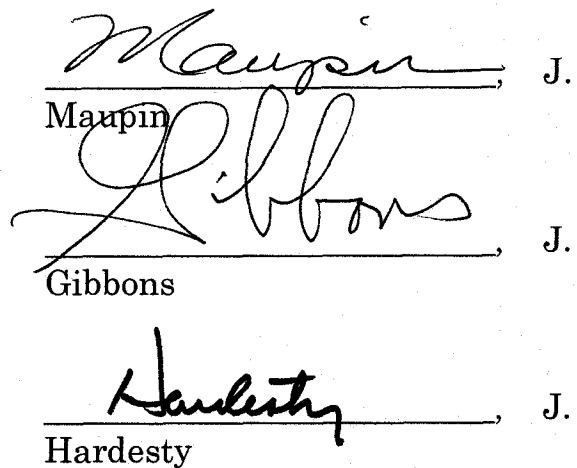 Maupin, J.
Maupin
Gibbons, J.
Gibbons
Hardesty, J.
Hardesty